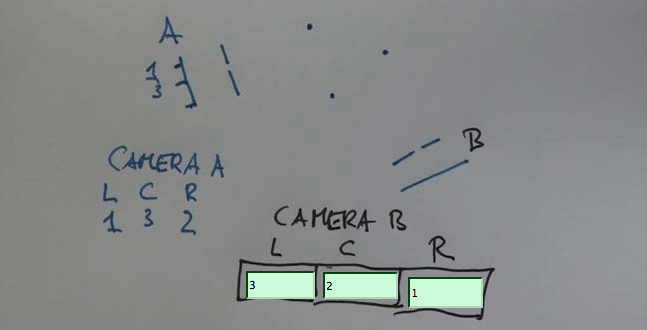 A
1
3
CAMERA A
L C R
1 3 2
B
CAMERA B
L C R
3 2 1